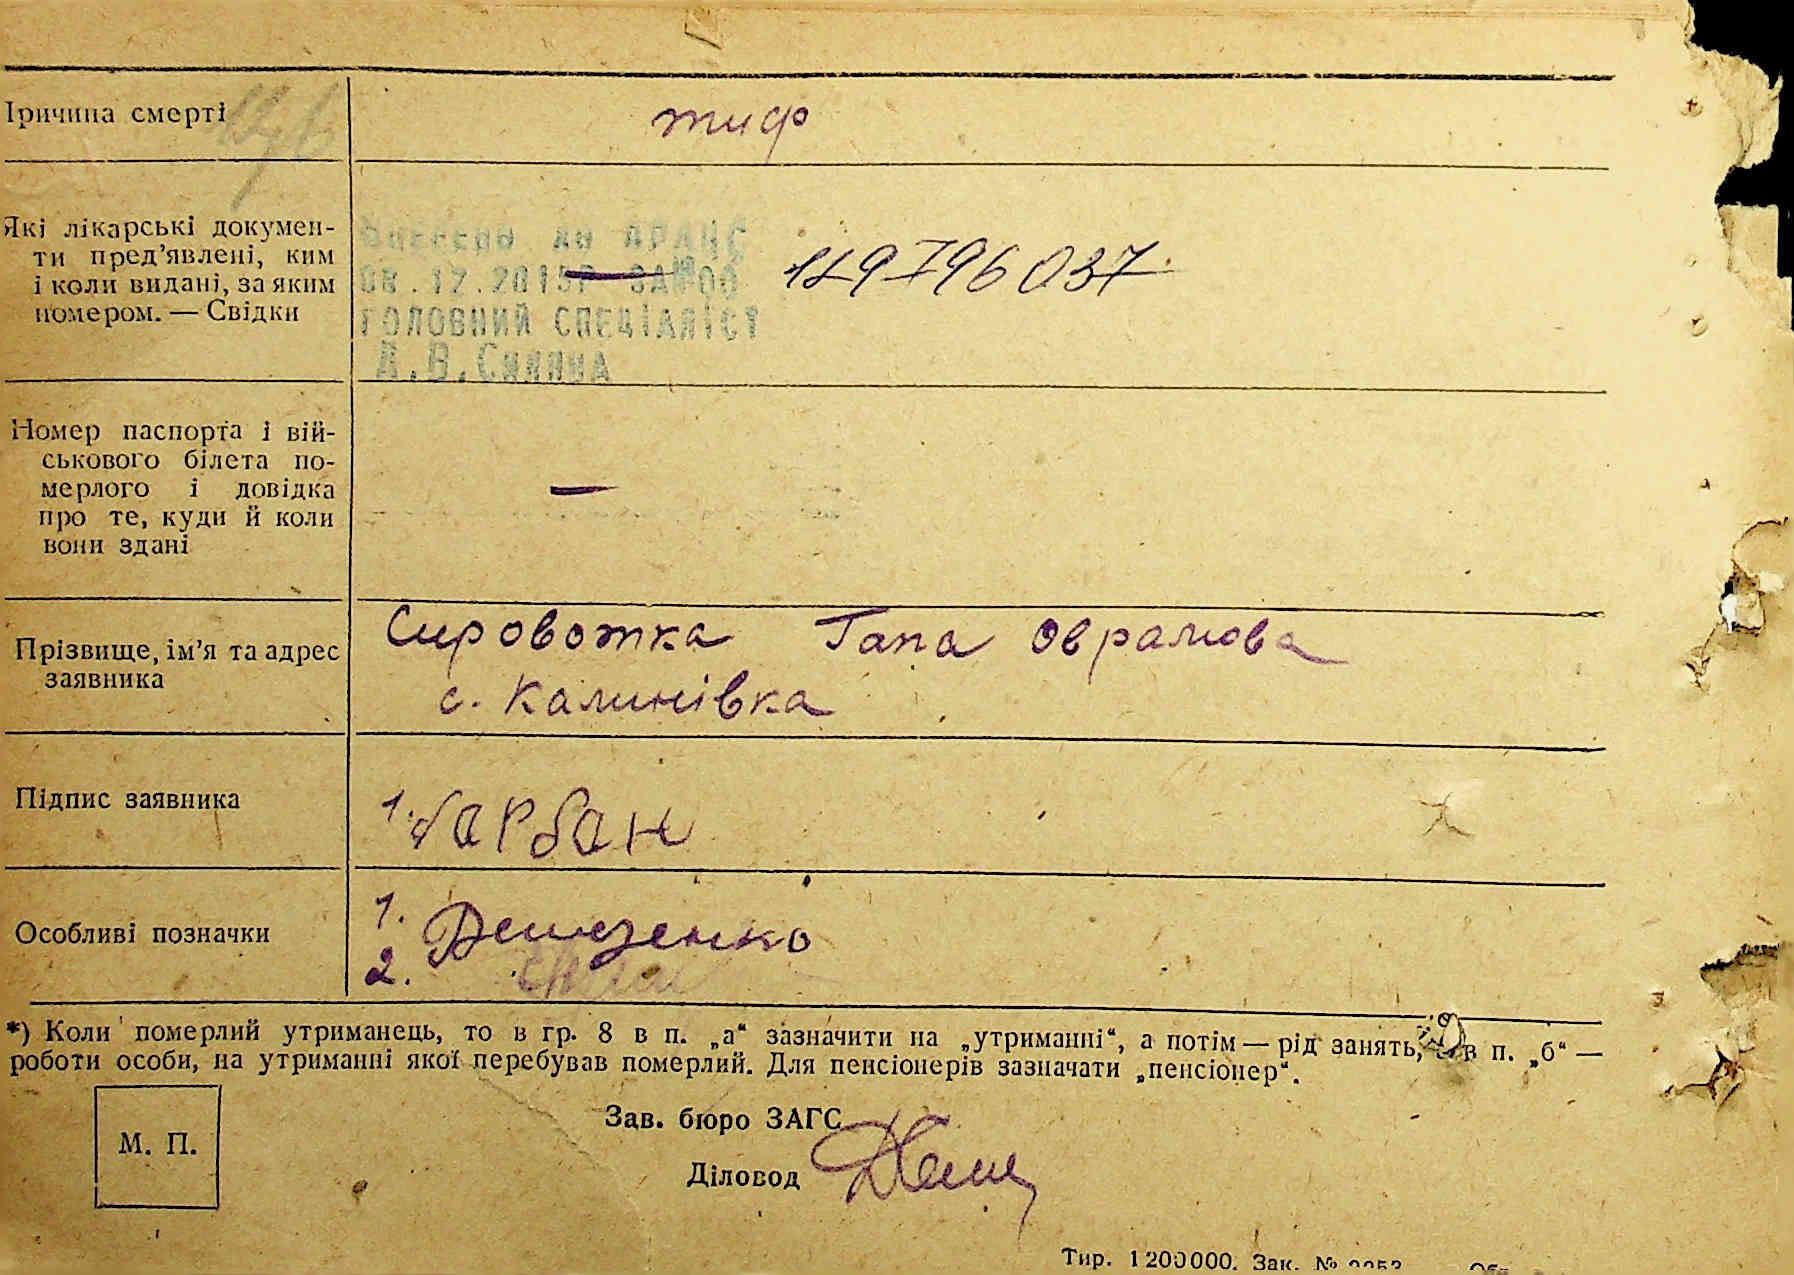 Причина смерті
тиф
Які лікарські докумен-
ти пред'явлені, ким
і коли видані, за яким
номером. — Свідки
Внесено до ДРАЦС
12.2015р ЗА №00
ГОЛОВНИЙ СПЕЦІАЛІСТ
А.В.
—
Номер паспорта і вій-
ськового білета по-
мерлого і довідка
про те, куди й коли
вони здані
—
Прізвище, ім'я та адрес
заявника
Сировотка Гапа Оврамова
с. Калинівка
Підпис заявника
1. барбан
Особливі позначки
1.
2.
*) Коли померлий утриманець, то в гр. 8 в п. „а“ зазначити на „утриманні“, а потім — рід занять, в п. „б“ —
роботи особи, на утриманні якої перебував померлий. Для пенсіонерів зазначати „пенсіонер“.
М. П.
Зав. бюро ЗАГС
Діловод
Тир. 1200000. Зак. №